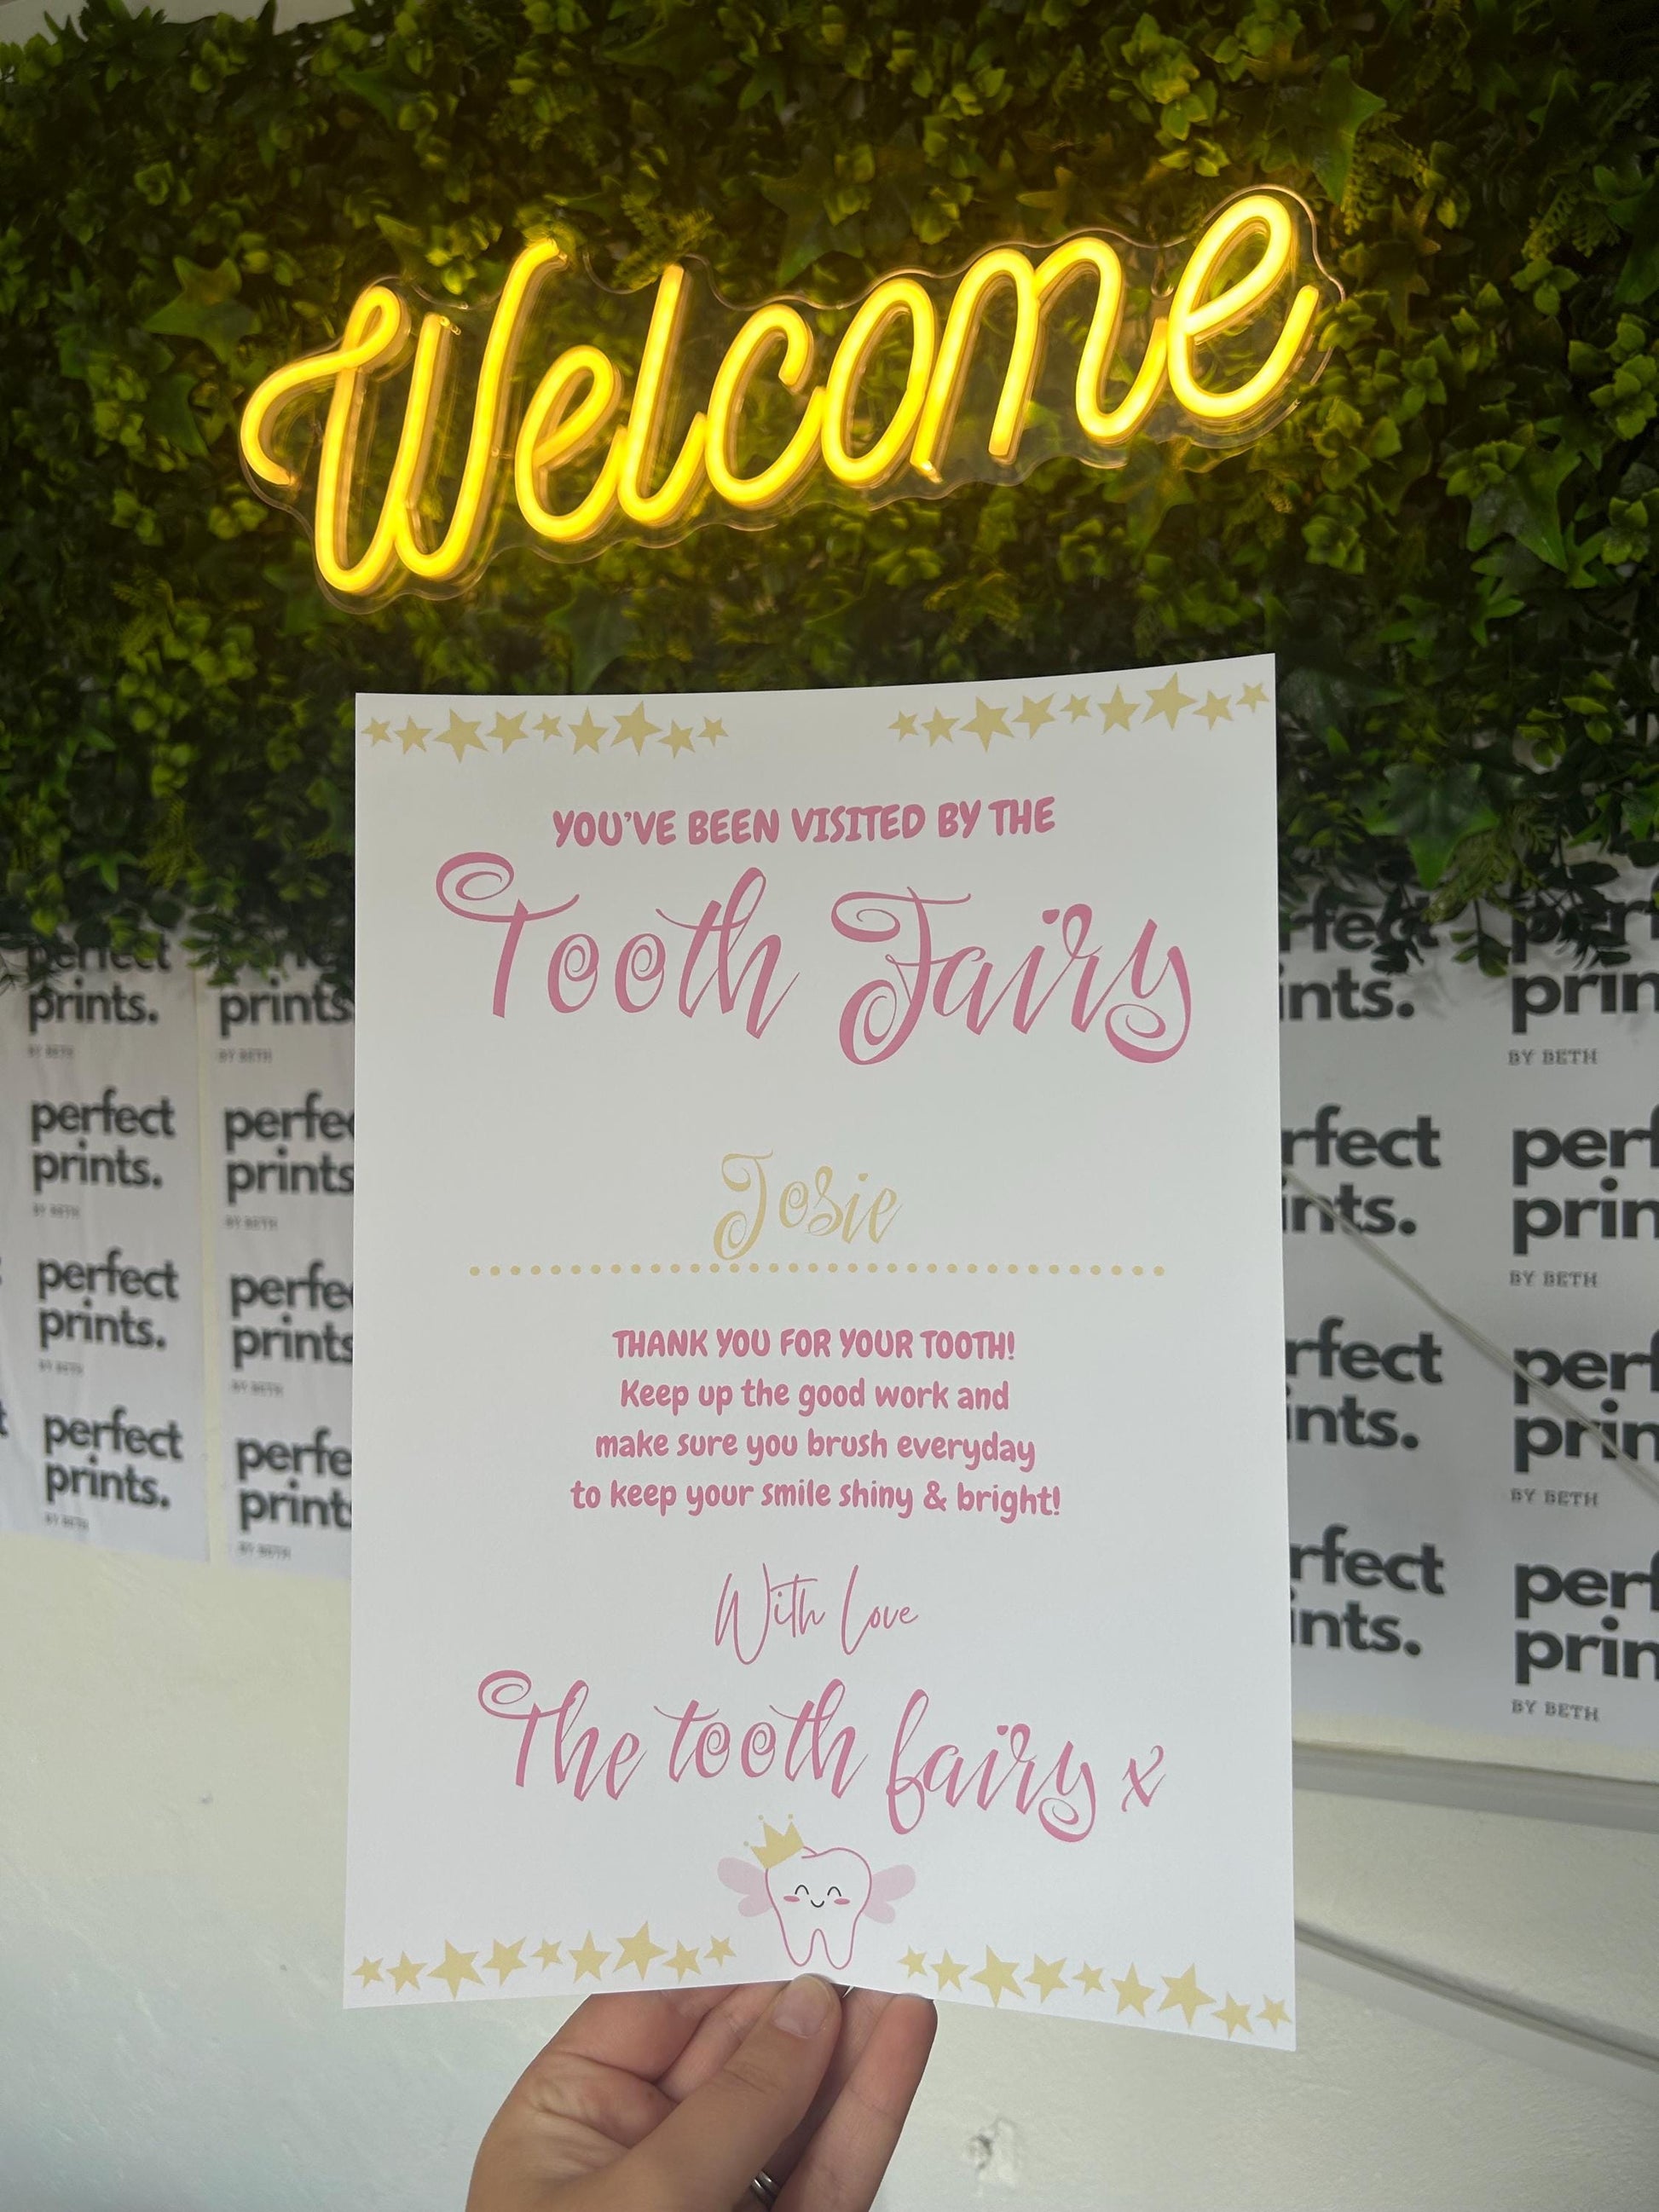 Welcome
YOU'VE BEEN VISITED BY THE
Tooth Fairy
Josie
THANK YOU FOR YOUR TOOTH!
Keep up the good work and
make sure you brush everyday
to keep your smile shiny & bright!
With Love
The tooth fairy x
perfect
prints.
BY BETH
perfect
prints.
BY BETH
perfect
prints.
BY BETH
perfect
prints.
BY BETH
perfe
prints
BY BETH
perfe
prints
BY BETH
perfe
print
BY BETH
rfect
ints.
rfect
ints.
rfect
ints.
rfect
ints.
per
prin
BY BETH
perf
prin
BY BETH
perf
prin
BY BETH
perf
prin
BY BETH